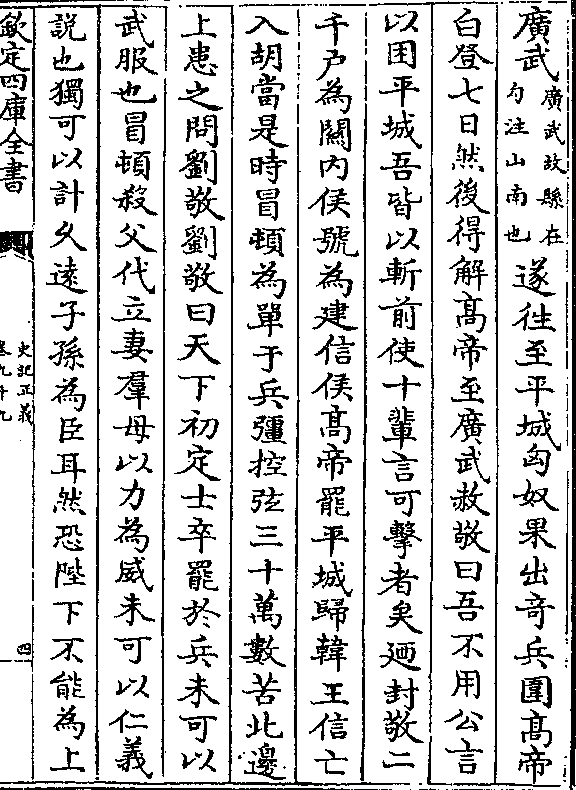 廣武
廣武故縣在
勾注山南也
遂徃至平城匈奴果出竒兵圍髙帝
白登七日然後得解髙帝至廣武赦敬曰吾不用公言
以困平城吾皆以斬前使十輩言可擊者矣廼封敬二
千户為闗内侯號為建信侯髙帝罷平城歸韓王信亡
入胡當是時冒頓為單于兵彊控弦三十萬數苦北邊
上患之問劉敬劉敬曰天下初定士卒罷於兵未可以
武服也冒頓殺父代立妻羣母以力為威未可以仁義
說也獨可以計久逺子孫為臣耳然恐陛下不能為上
欽定四庫全書
史記正義
卷九十九
四